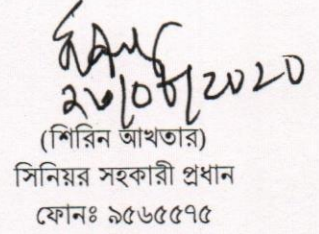 ২৬/০৮/2020
(শিরিন আখতার)
সিনিয়র সহকারী প্রধান
ফোনঃ ৯৫৬৫৫৭৫